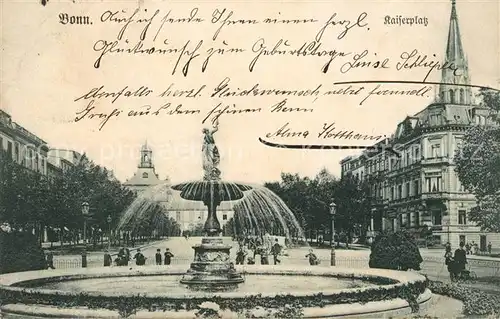 Bonn.
Kaiserplatz
Auch ich sende Ihnen einen herzl.
Glückwunsch zum Geburtstage
Luise Schlieper
Ebenfalls herzl. Glückwunsch nebst freundl.
Gruss aus dem schönen Bonn
Alma Kotthaus